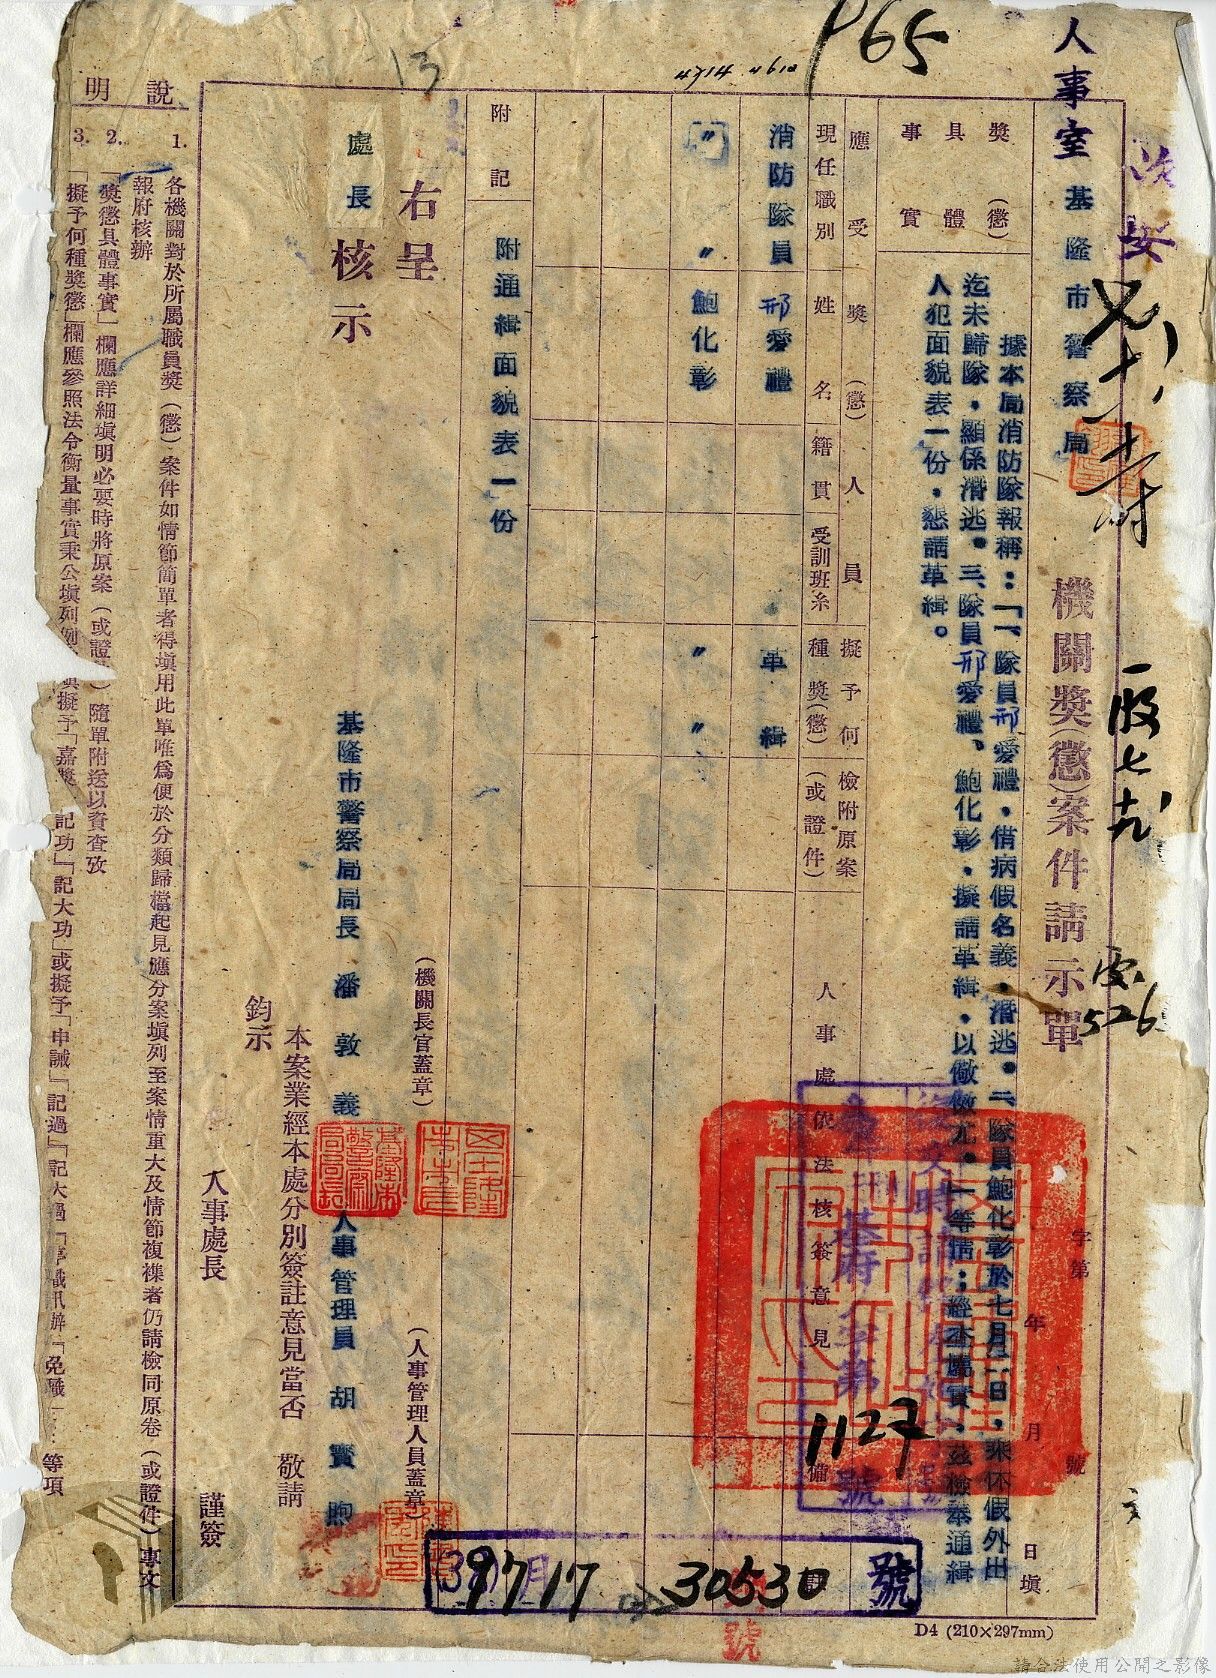 P65
13
人事室
基隆市警察局
機關獎(懲)案件請示單
字第 號
年 月 日填
獎(懲)
具體
事實
據本局消防隊報稱：「一、隊員邢愛禮，借病假名義，潛逃。二、隊員鮑化彰於七月二日，乘休假外出
迄未歸隊，顯係潛逃。三、隊員邢愛禮、鮑化彰，擬請革緝，以儆效尤。」等情；經查屬實，茲檢奉通緝
人犯面貌表一份，懇請革緝。
應受獎(懲)人員
現任職別
姓名
籍貫
受訓班系
擬予何種獎(懲)
檢附原案(或證件)
人事處依法核簽意見
備
消防隊員 邢愛禮 革緝
〃 〃 鮑化彰 〃 〃
基府人字第 號
1127
附記
附通緝面貌表一份
右呈
處長 核示
(機關長官蓋章)
(人事管理人員蓋章)
基隆市警察局局長 潘敦義
人事管理員 胡賢煦
本案業經本處分別簽註意見當否 敬請
鈞示
人事處長 謹簽
說明
1. 各機關對於所屬職員獎(懲)案件如情節簡單者得塡用此單唯爲便於分類歸檔起見應分案塡列至案情重大及情節複襍者仍請檢同原卷(或證件)專文
報府核辦
2. 「獎懲具體事實」欄應詳細塡明必要時將原案(或證)隨單附送以資查攷
3. 「擬予何種獎懲」欄應參照法令衡量事實秉公塡列例 塡擬予「嘉獎 記功」「記大功」或擬予「申誡」「記過」「記大過」「停職 「免職」…等項
17
30530
號
526
D4 (210×297mm)
請合法使用公開之影像